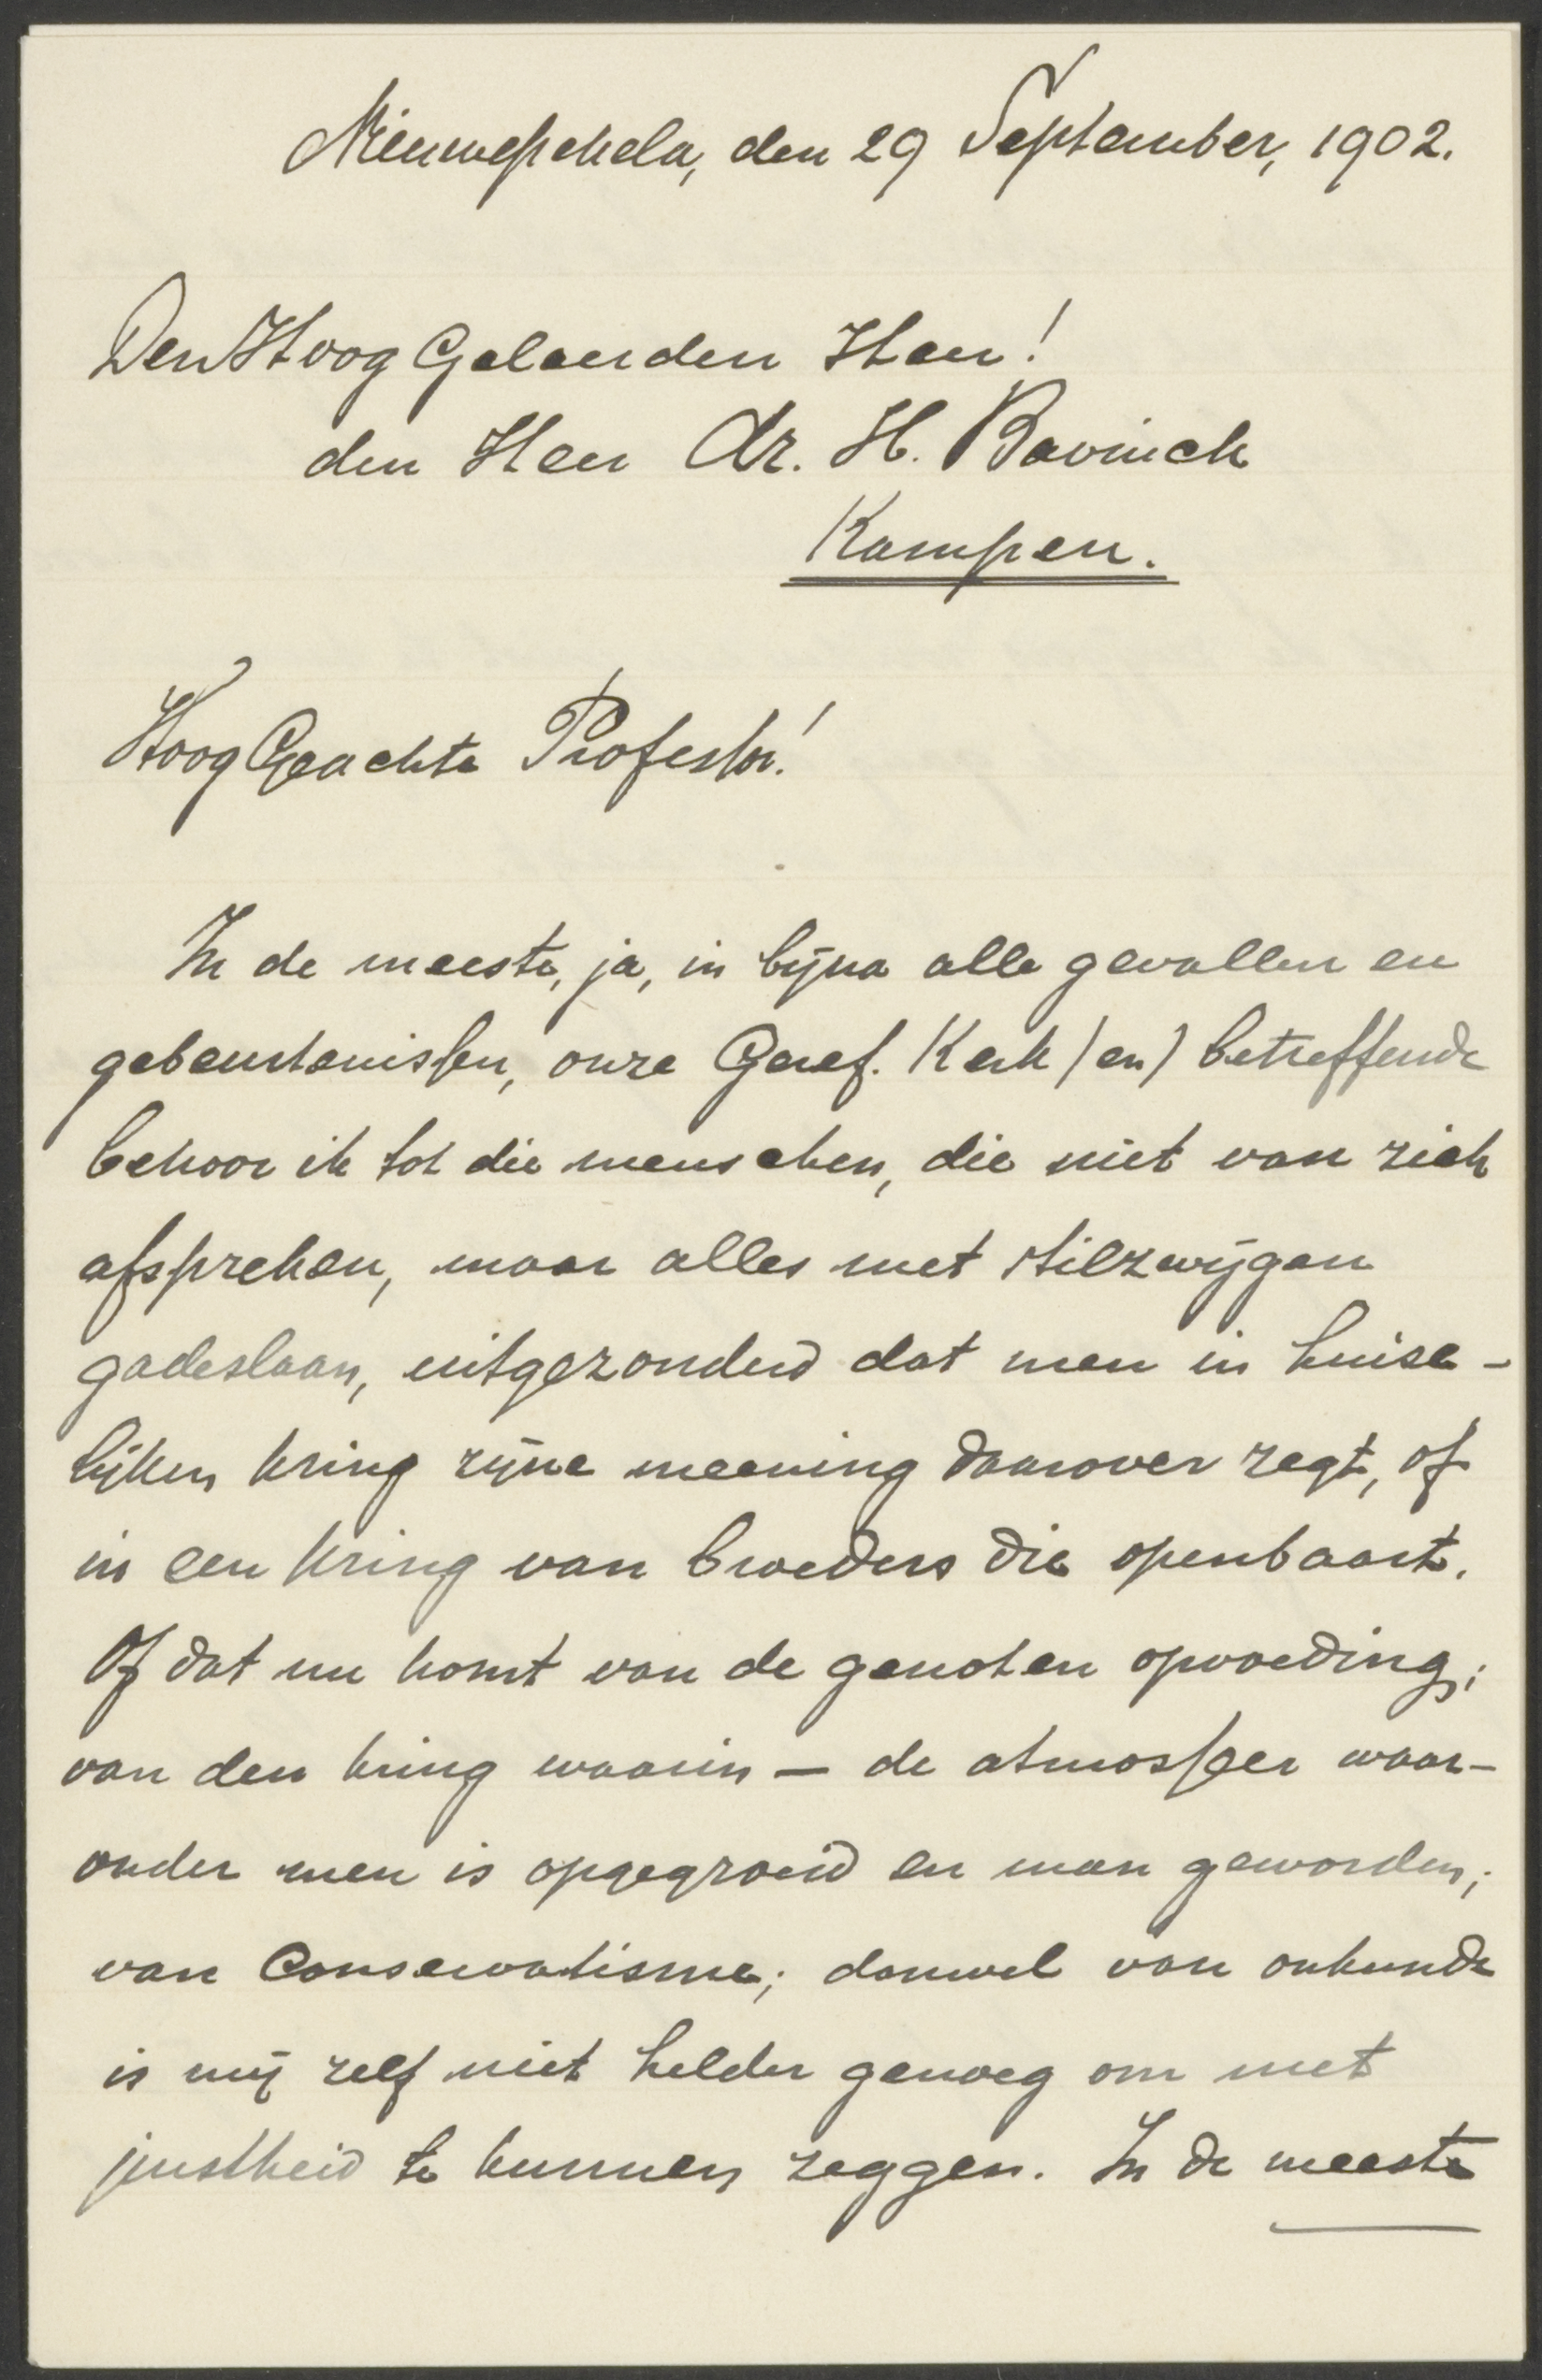 Nieuweschela, den 29 September, 1902.
Den Hoog Geleerden Heer!
den Heer Dr. H. Bavinck
Kampen.
Hoog Geachte Professor!
In de meeste, ja, in bijna alle gevallen en
gebeurtenissen, onze Geref. Kerk (en) betreffende
behoor ik tot die menschen, die niet van zich
afspreken, maar alles met stilzwijgen
gadeslaan, uitgezonderd dat men in huise-
lijken kring zijne meening daarover zegt, of
in een kring van broeders die openbaart.
Of dat nu komt van de genoten opvoeding;
van den kring waarin — de atmosfeer waar-
onder men is opgegroeid en man geworden;
van Conservatisme; danwel van onkunde
is mij zelf niet helder genoeg om met
justheid te kunnen zeggen. In de meeste